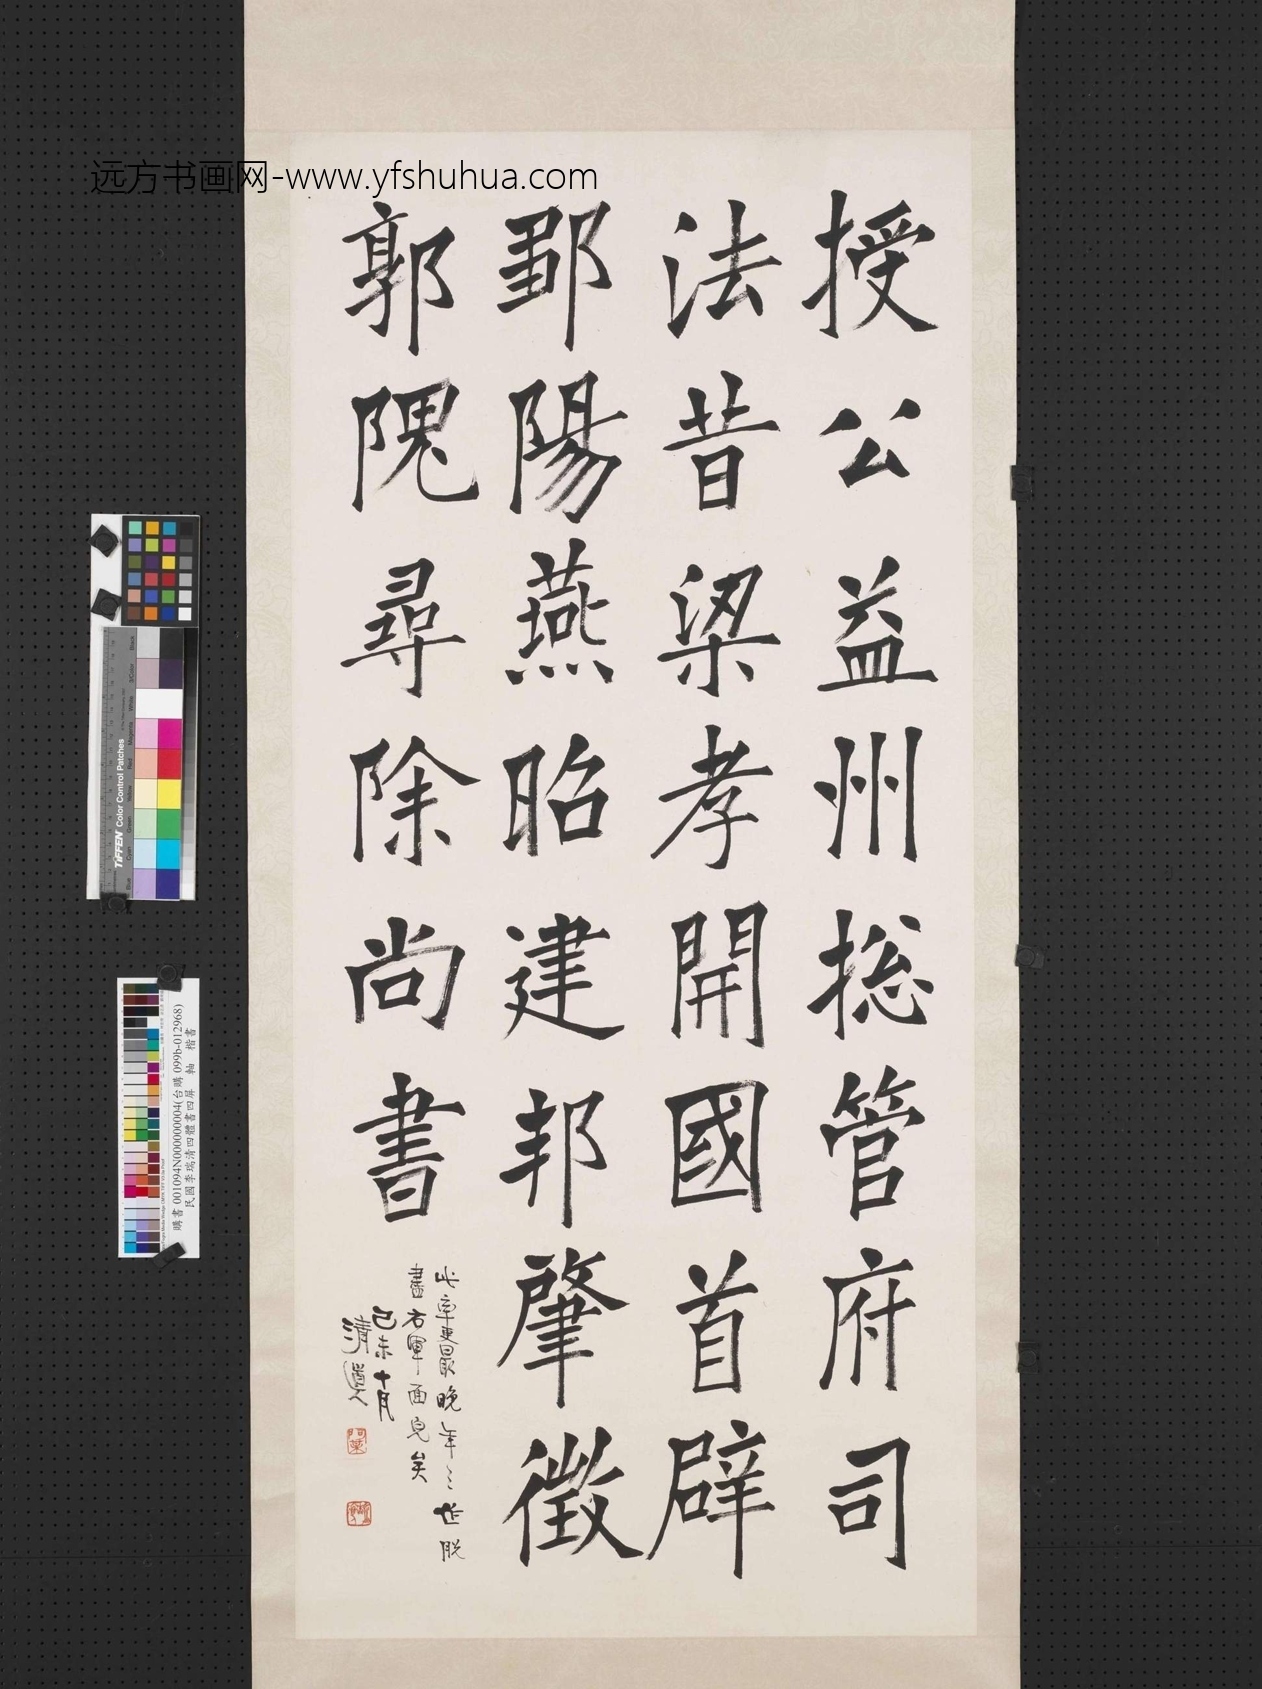 远方书画网-www.yfshuhua.com
授公益州捴管府司
法昔梁孝開國首辟
鄒陽燕昭建邦肇徵
郭隗尋除尚書
晚年之
書右軍面皃矣
己未十月
清道人
TIFFEN Color Control Patches
購書 001094N000000004(台購 099b-012968)
民國李瑞清四體書四屏 軸 楷書